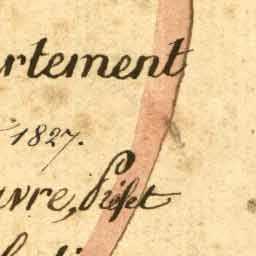 rtement
1827.
uvre, Préfet